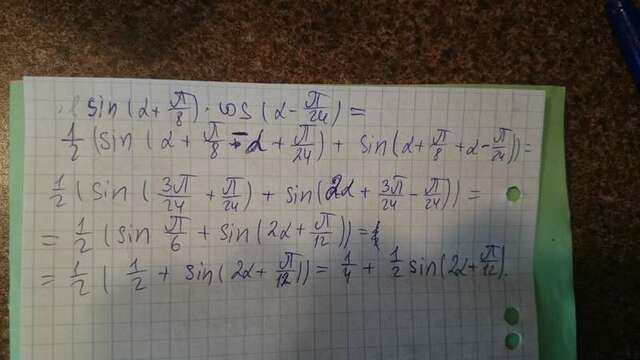 sin(α + π/8) · cos(α - π/24) =
1/2 (sin(α + π/8 - α + π/24) + sin(α + π/8 + α - π/24)) =
1/2 (sin(3π/24 + π/24) + sin(2α + 3π/24 - π/24)) =
= 1/2 (sin π/6 + sin(2α + π/12)) =
= 1/2 (1/2 + sin(2α + π/12)) = 1/4 + 1/2 sin(2α + π/12).